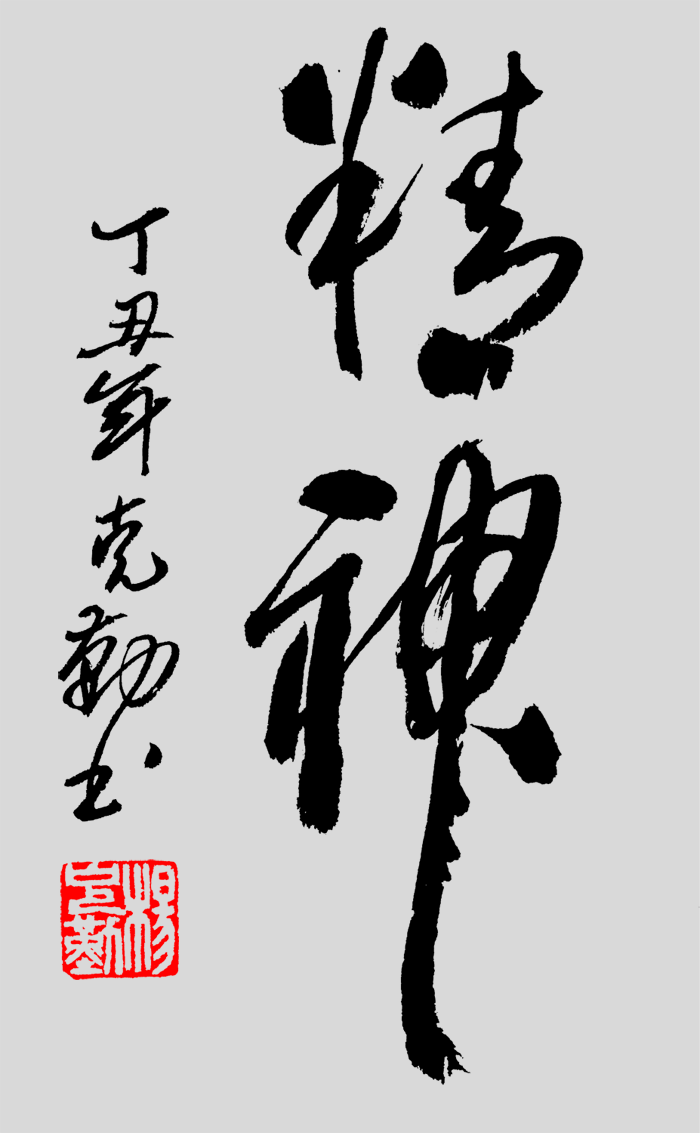 精神
丁丑年克勤书
杨克勤